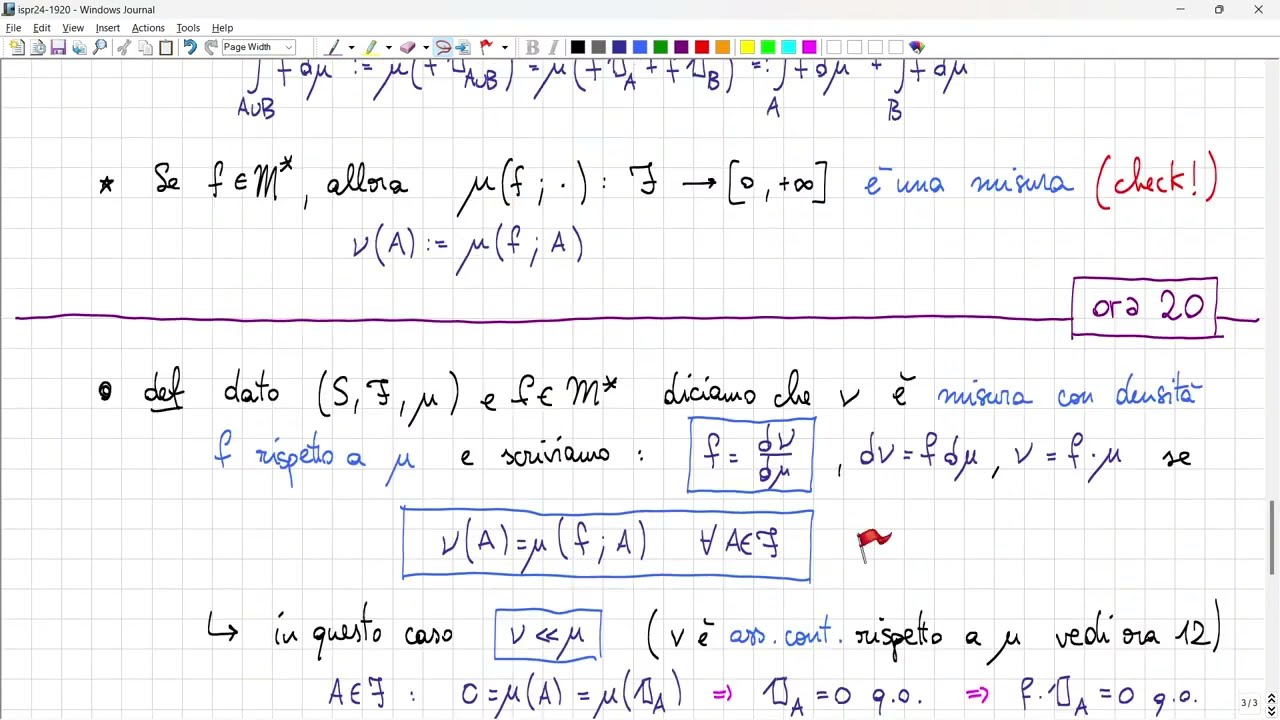 ispr24-1920 - Windows Journal
File Edit View Insert Actions Tools Help
Page Width B I
∫_{A∪B} f dμ := μ(f 𝟙_{A∪B}) = μ(f 𝟙_A + f 𝟙_B) =: ∫_A f dμ + ∫_B f dμ
* Se f ∈ M*, allora μ(f ; ·) : F → [0, +∞] è una misura (check!)
ν(A) := μ(f ; A)
ora 20
• def dato (S, F, μ) e f ∈ M* diciamo che ν è misura con densità
f rispetto a μ e scriviamo : f = dν/dμ , dν = f dμ , ν = f · μ se
ν(A) = μ(f ; A) ∀ A ∈ F
↳ in questo caso ν << μ (ν è ass. cont. rispetto a μ vedi ora 12)
A ∈ F : 0 = μ(A) = μ(𝟙_A) ⇒ 𝟙_A = 0 q.o. ⇒ f · 𝟙_A = 0 q.o.
3/3